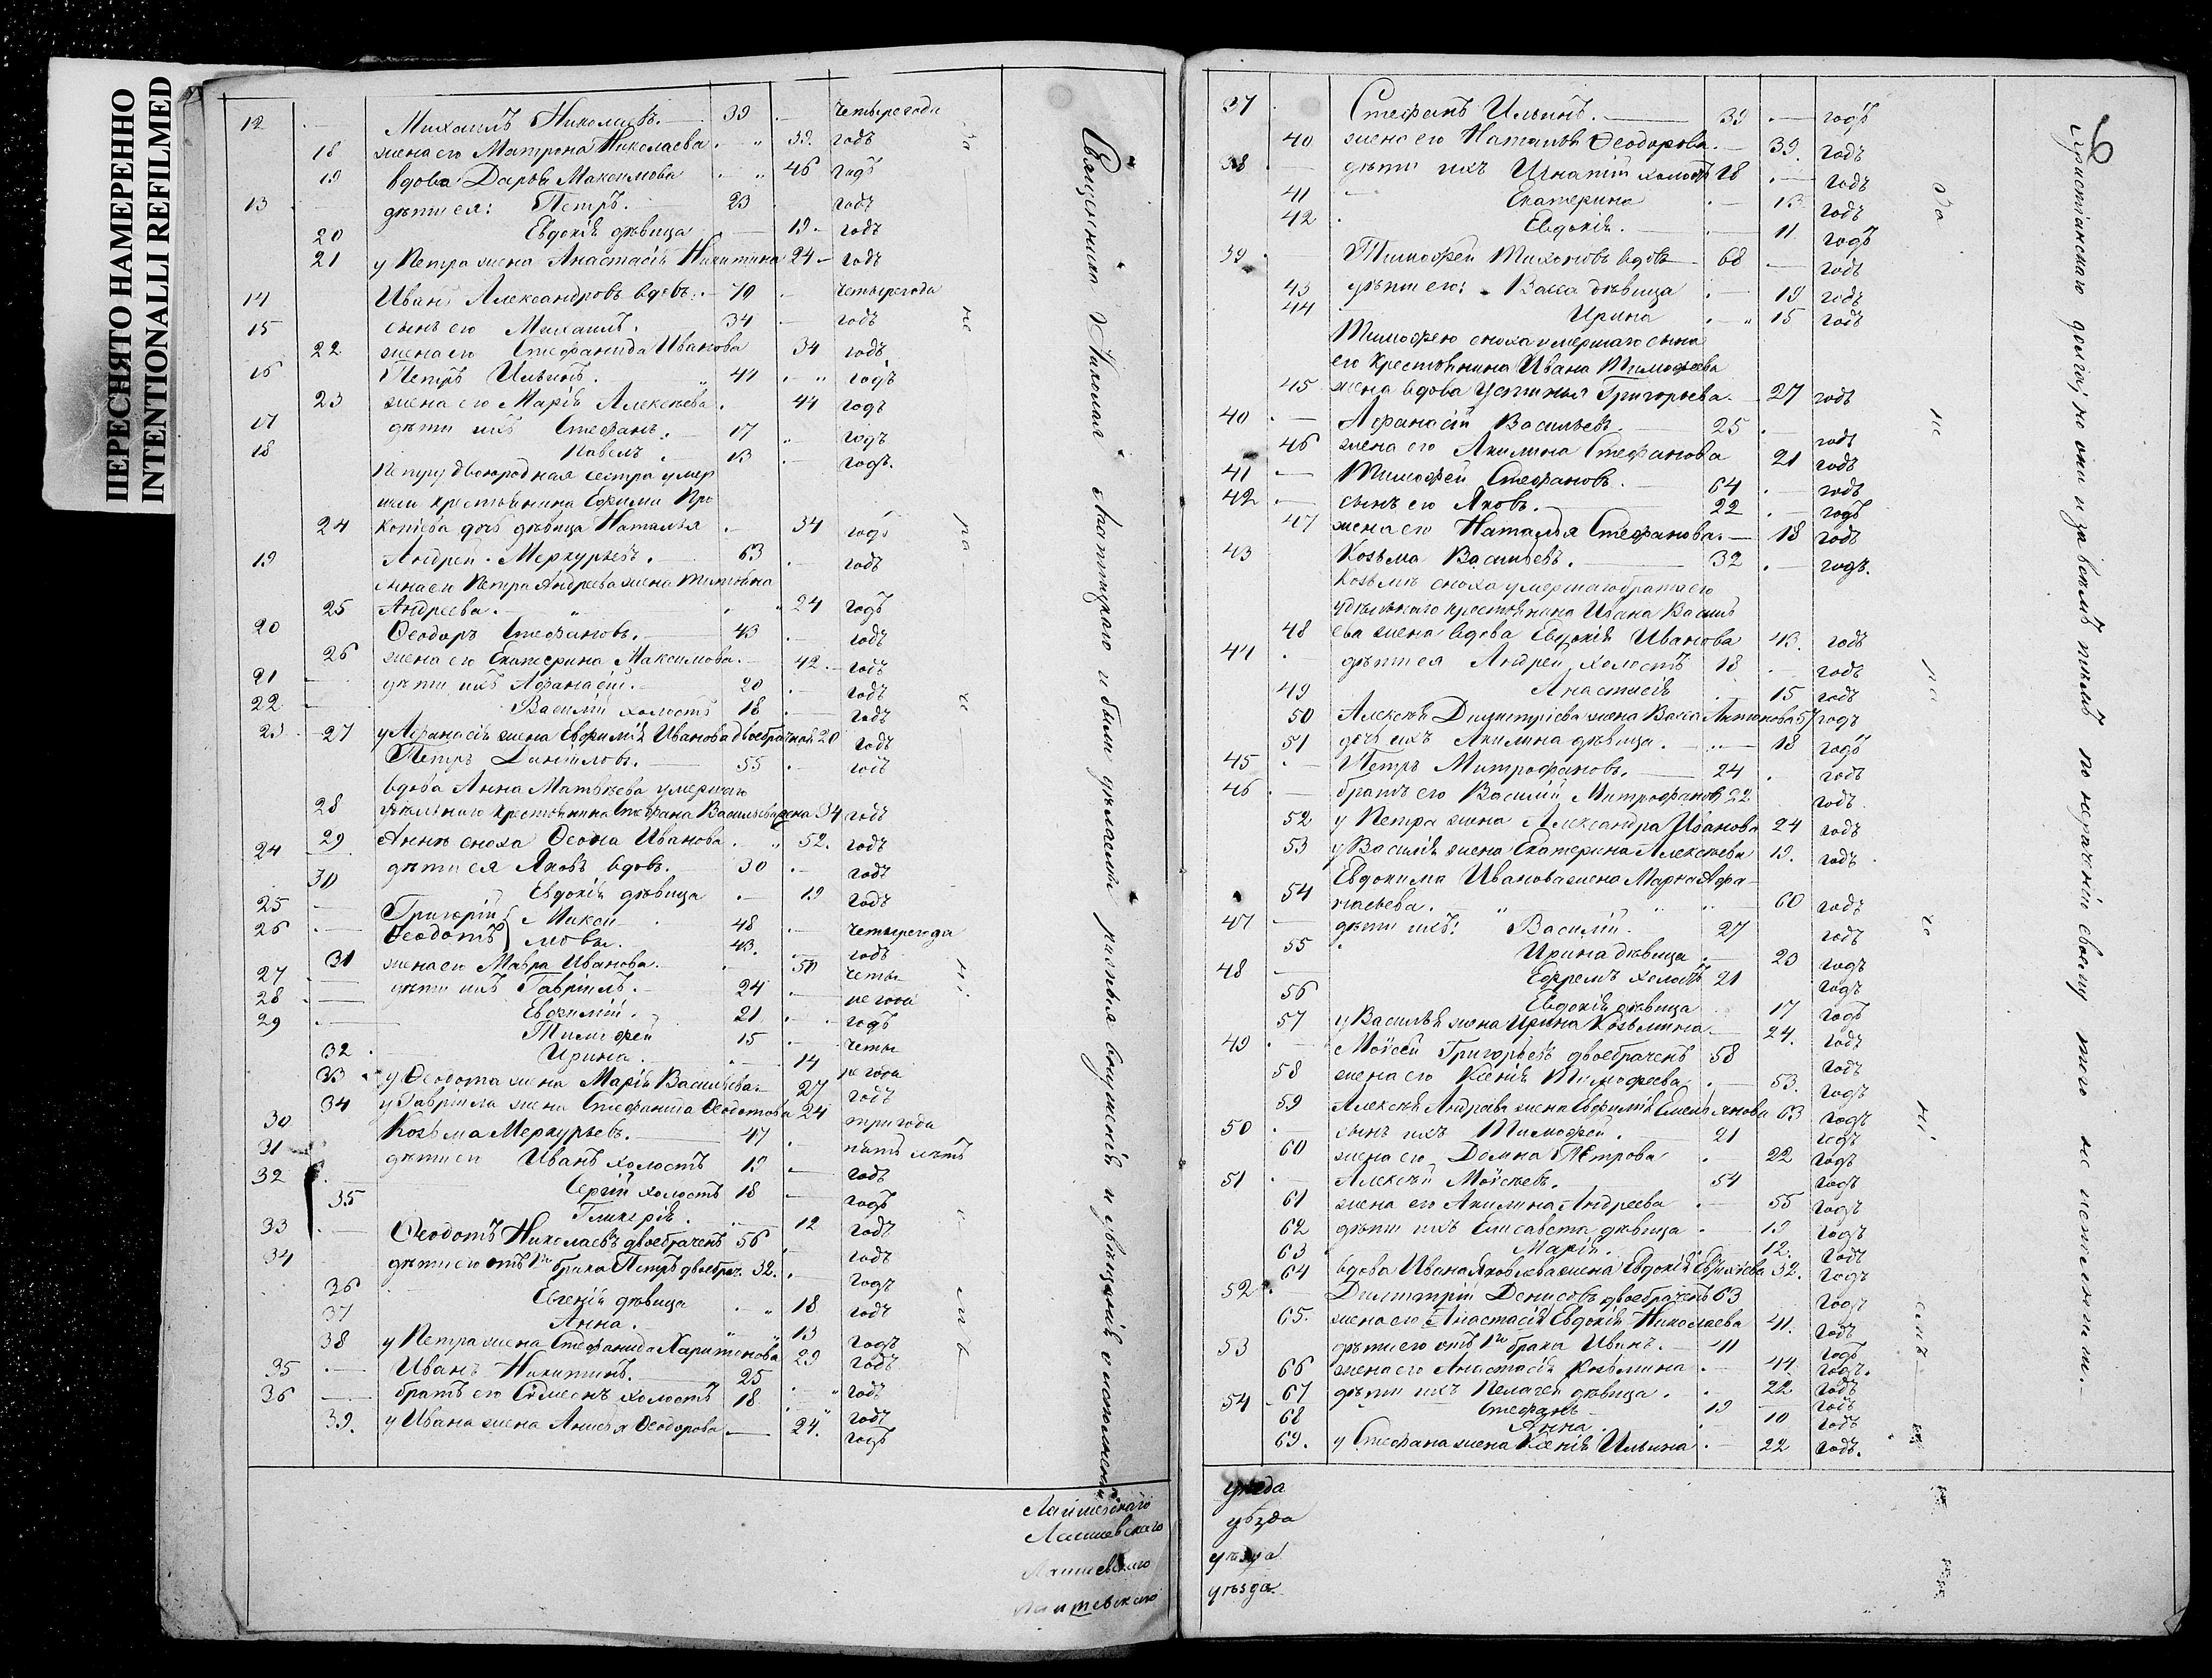 ПЕРЕСНЯТО НАМЕРЕННО
INTENTIONALLI REFILMED
12 Михаилъ Николаевъ. 39 четыре года
18 жена его Матрона Николаева 39. годъ
19 вдова Дарья Максимова 46 годъ
13 дѣти ея: Петръ. 23 годъ
20 Евдокія дѣвица 19 годъ
21 у Петра жена Анастасія Никитина 24 годъ
14 Иванъ Александровъ вдовъ. 70 четыре года
15 сынъ его Михаилъ. 34 годъ
22 жена его Стефанида Иванова 34 годъ
16 Петръ Ильинъ. 44 годъ
23 жена его Марія Алексѣева. 44 годъ
17 дѣти ихъ Стефанъ. 17 годъ
18 Павелъ. 13 годъ.
Петру двоюродная сестра умер
шаго крестьянина Ефима Про
24 копіева дочь дѣвица Наталья 34 годъ
19 Андрей Меркурьевъ. 63 годъ
сына его Петра Андреева жена
25 Андреева. 24 годъ
20 Ѳеодоръ Стефановъ. 43 годъ
26 жена его Екатерина Максимова. 42 годъ
21 дѣти ихъ Афанасій. 20 годъ
22 Василій холостъ 18 годъ
23 27 у Афанасія жена Евфимія Иванова двоебрачная 20 годъ
Петръ Даниловъ. 55 годъ
вдова Анна Матвѣева умершаго
28 удѣльнаго крестьянина Стефана Васильева жена 34 годъ
29 Аннѣ сноха Ѳеона Иванова 52. годъ
24 дѣти ея Яковъ вдовъ. 30 годъ
30 Евдокія дѣвица 19 годъ
25 Григорій Макси 48 четыре года
26 Ѳеодотъ мовы. 43. годъ
31 жена его Мавра Иванова. 50 четы
27 дѣти ихъ Гавріилъ. 24 ре года
28 Евфимій. 21 годъ
29 Тимофей 15 четы
32 Ирина. 14 ре года
33 у Ѳеодота жена Марія Васильева 27 годъ
34 у Гавріила жена Стефанида Ѳеодотова 24 три года
30 Козьма Меркурьевъ. 47 пять лѣтъ
31 дѣти его Иванъ холостъ 19 годъ
32 Сергій холостъ 18 годъ
35 Гликерія. 12 годъ
33 Ѳеодотъ Николаевъ двоебраченъ 56 годъ
34 дѣти его отъ 1го брака Петръ двоебрач. 32. годъ
36 Евгенія дѣвица 18 годъ
37 Анна. 13 годъ
38 у Петра жена Стефанида Харитонова 29 годъ
35 Иванъ Никитинъ. 25 годъ
36 братъ его Симеонъ холостъ 18 годъ
39. у Ивана жена Анисья Ѳеодорова 24. годъ
За не ра че ні е мъ
Священника Николая и были дѣлаемы разныя внушенія и увѣщанія о исполненіи
Лаишевскаго
Лаишевскаго
Лаишевскаго
Лаишевскаго
37 Стефанъ Ильинъ. 39 годъ
40 жена его Наталья Ѳеодорова. 39. годъ
38 дѣти ихъ Игнатій холостъ 18 годъ
41 Екатерина 13 годъ
42 Евдокія. 11 годъ
39 Тимофей Тихоновъ вдовъ 68 годъ
43 дѣти его: Васса дѣвица 19 годъ
44 Ирина 15 годъ
Тимофею сноха умершаго сына
его крестьянина Ивана Тимофеева
45 жена вдова Устинья Григорьева. 27 годъ
40 Афанасій Васильевъ. 25 годъ
46 жена его Акилина Стефанова 21 годъ
41 Тимофей Стефановъ. 64 годъ
42 сынъ его Яковъ. 22 годъ
47 жена его Наталья Стефанова. 18 годъ
43 Козьма Васильевъ. 32 годъ.
Козьмѣ сноха умершаго брата его
удѣльнаго крестьянина Ивана Василь
48 ева жена вдова Евдокія Иванова 43. годъ
44 дѣти ея Андрей холостъ 18 годъ
49 Анастасія 15 годъ
50 Алексѣя Димитріева жена Васса Антонова 57 годъ
51 дочь ихъ Акилина дѣвица. 18 годъ
45 Петръ Митрофановъ. 24 годъ
46 братъ его Василій Митрофановъ 22 годъ
52 у Петра жена Александра Иванова 24 годъ
53 у Василія жена Екатерина Алексѣева 19. годъ
Евдокима Иванова жена Марѳа Афа
54 насьева. 60 годъ
47 дѣти ихъ: Василій. 27 годъ
55 Ирина дѣвица 23 годъ
48 Ефремъ холостъ 21 годъ
56 Евдокія дѣвица 17 годъ
57 у Василья жена Ирина Козьмина 24. годъ
49 Моѵсей Григорьевъ двоебраченъ 58 годъ
58 жена его Ксенія Тимофеева 53. годъ
59 Алексѣя Андреева жена Евфимія Емельянова 63 годъ
50 сынъ ихъ Тимофей. 21 годъ
60 жена его Домна Петрова 22 годъ
51 Алексѣй Моѵсеевъ. 54 годъ
61 жена его Акилина Андреева 55 годъ
62 дѣти ихъ Елисавета дѣвица 19 годъ
63 Марія. 12. годъ
64 вдова Ивана Яковлева жена Евдокія Евфиміева 32. годъ
52 Димитрій Денисовъ двоебраченъ 63 годъ
65. жена его Анастасія Евдокія Николаева 41. годъ
53 дѣти его отъ 1го брака Иванъ. 41 годъ
66 жена его Анастасія Козьмина 44. годъ.
67 дѣти ихъ Пелагея дѣвица. 22 годъ
54 Стефанъ 19 годъ
68 Анна. 10 годъ
69. у Стефана жена Ксенія Ильина 22 годъ.
За не ра че ні емъ
христіанскаго долга, но они и за всѣмъ тѣмъ по нераченію своему того не исполнили.
уѣзда
уѣзда
уѣзда
уѣзда